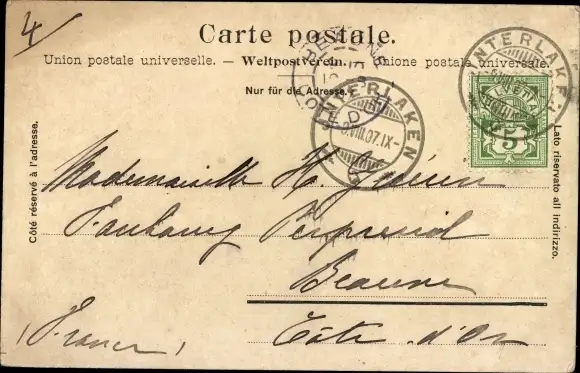 4
Carte postale.
Union postale universelle. — Weltpostverein. — Unione postale universale.
Nur für die Adresse.
INTERLAKEN
VIII.07.IX-
INTERLAKEN
HELVETIA
5
BEAUNE
CÔTE D'OR
Côté réservé à l'adresse.
Lato riservato all indirizzo.
Mademoiselle H.
Faubourg Perpreuil
Beaune
(France) Côte d'Or